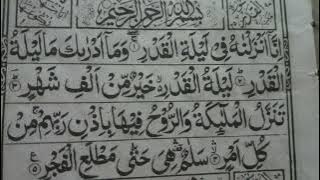 بِسْمِ اللهِ الرَّحْمٰنِ الرَّحِيْمِ
اِنَّاۤ اَنْزَلْنٰهُ فِيْ لَيْلَةِ الْقَدْرِ ۚ۝۱ وَمَاۤ اَدْرٰىكَ مَا لَيْلَةُ
الْقَدْرِ ؕ۝۲ لَيْلَةُ الْقَدْرِ ۙ۬ خَيْرٌ مِّنْ اَلْفِ شَهْرٍ ؕ۝۳
تَنَزَّلُ الْمَلٰٓئِكَةُ وَالرُّوْحُ فِيْهَا بِاِذْنِ رَبِّهِمْ ۚ مِنْ
كُلِّ اَمْرٍ ۙۛ۝۴ سَلٰمٌ ۛ۫ هِيَ حَتّٰى مَطْلَعِ الْفَجْرِ ۝۵ ع